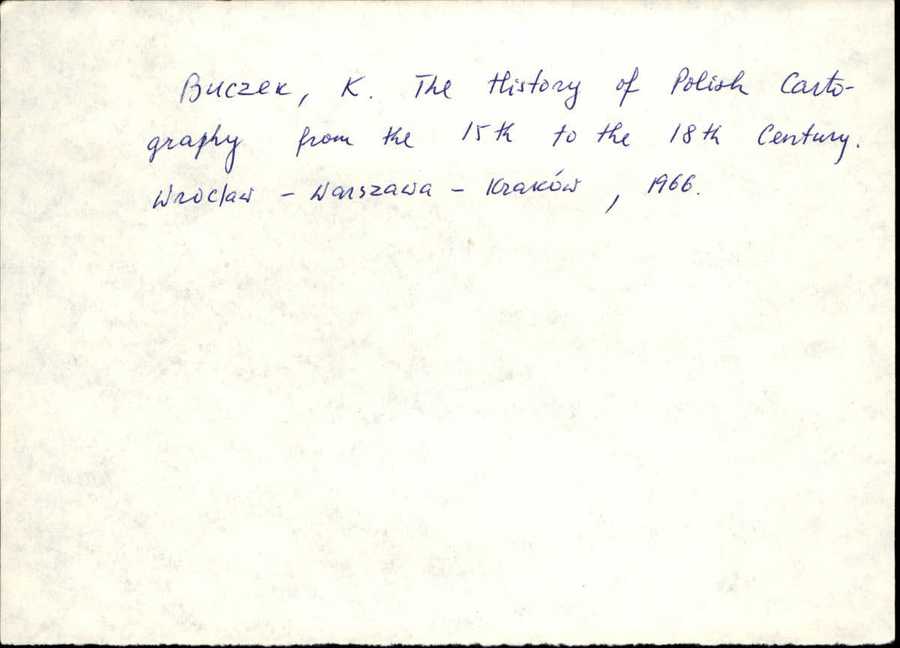 Buczek, K. The History of Polish Carto-
graphy from the 15th to the 18th Century.
Wroclaw - Warszawa - Kraków, 1966.